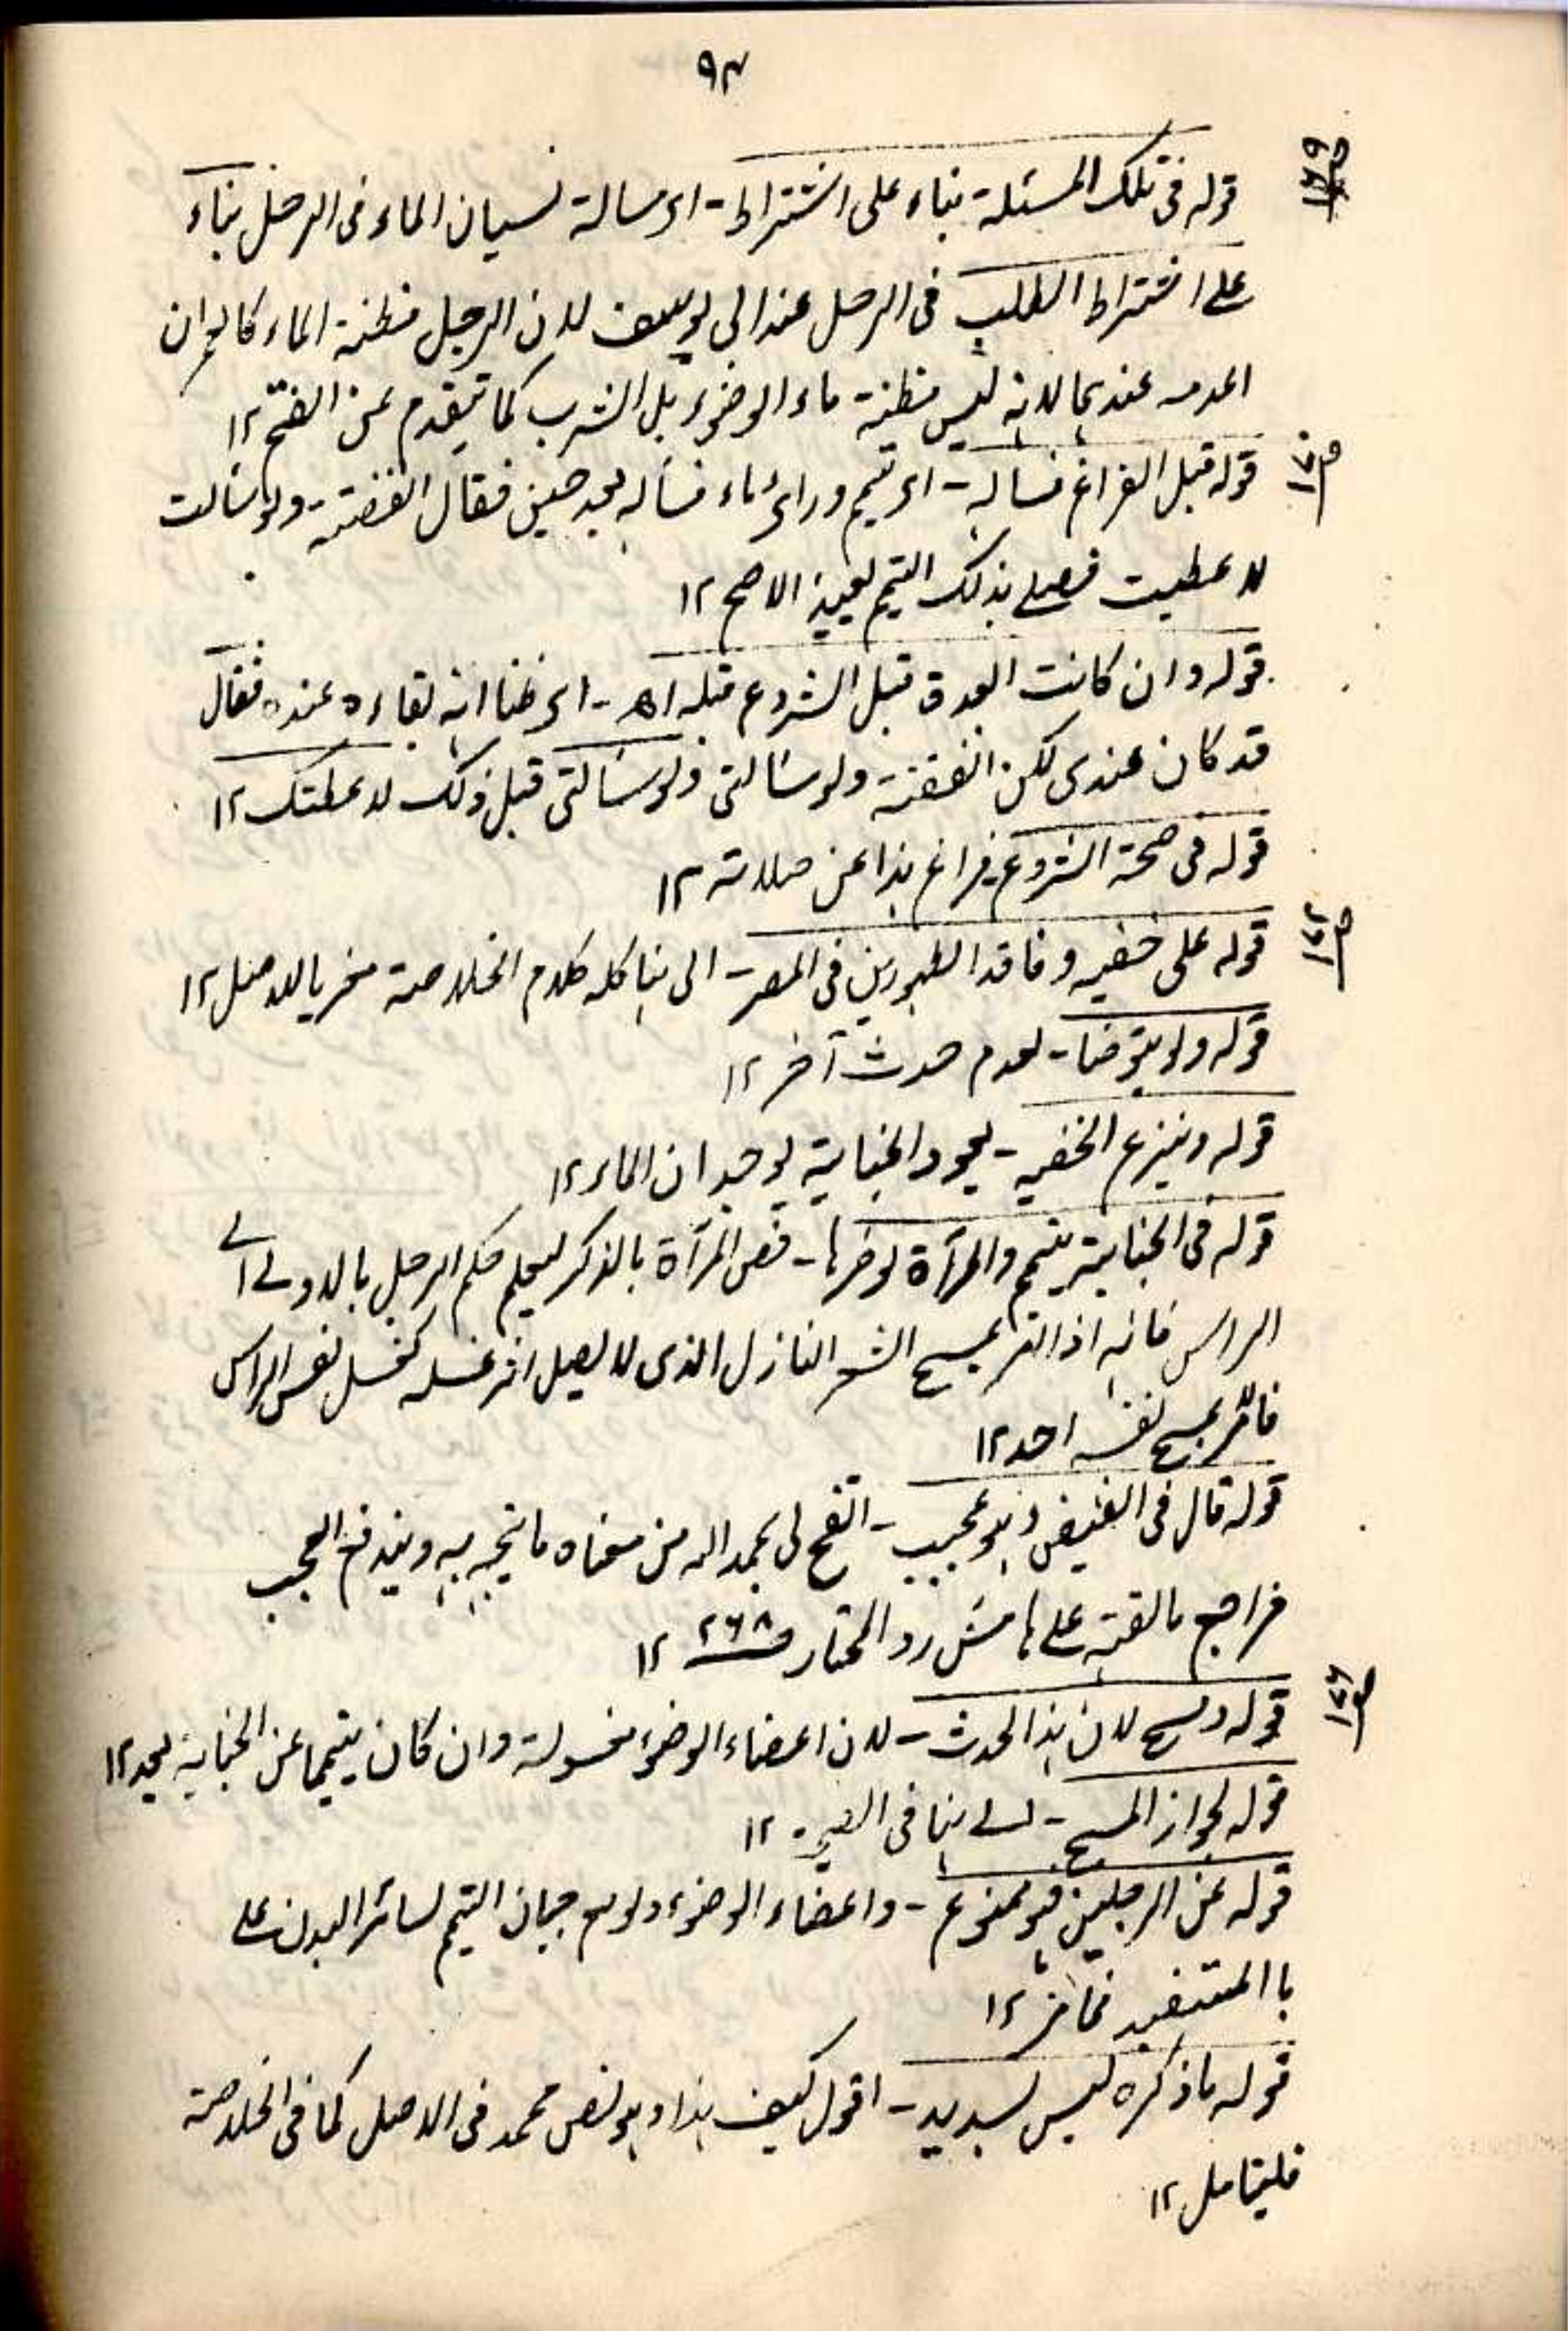 ٩٣
ص١٦٩
قوله فى تلك المسئلة بناء على اشتراط - اى مسالة نسيان الماء فى الرحل بناء
على اشتراط الطلب فى الرحل عند ابى يوسف لان الرحل مظنة الماء كالعمران
عندهما لانه ليس مظنة ماء الوضوء بل الشرب كما تقدم عن الفتح ١٢
ص١٧٠
قوله قبل الفراغ فساله - اى تيمم وراى ماء فساله بعد حين فقال انفقته ولو سالت
لاعطيت فصلى بذلك التيمم يعيد الاصح ١٢
قوله وان كانت العدة قبل الشروع قبله اھ - اى ظنا انه بقاءه عنده فقال
قد كان عندى لكن انفقته ولو سالتى ولو سالتى قبل ذلك لاعطتك ١٢
قوله فى صحة الشروع فراغ هذا عن صلاته ١٢
ص١٧٢
قوله على خفيه وفاقد الطهورين فى المصر - الى هنا كله كلام الخلاصة للاصل ١٢
قوله ولو يتوضا - لعدم حدث آخر ١٢
قوله وينزع الخفيه - لعود الجنابة لوجدان الماء ١٢
قوله فى الجنابة يتيمم والمرآة لو ضرها - فنص المرآة بالذكر ليعلم حكم الرجل بالاولى
الراس فانه اذا الشعر النازل الذى لا يصل اثر غسله كغسل نفس الراس
بمسح نفسه احد ١٢
قوله قال فى الفيض وهو عجيب - اتضح لى بحمد الله من معناه ما يتجه به ويندفع العجب
فراجع ما القيته على هامش رد المحتار ص٢٦٨ ١٢
ص١٧٦
قوله ومسح لان هذا الحدث - لان اعضاء الوضوء مغسولة وان كان يتيمما عن الجنابة بعد ١٢
قوله لجواز المسح - هنا فى ١٢
قوله عن الرجلين فهو ممنوع - واعضاء الوضوء ولو مع التيمم لسائر البدن على
١٢
قوله ما ذكره ليس بسديد - اقول كيف هذا وهو نص محمد فى الاصل كما فى الخلاصة
فليتامل ١٢